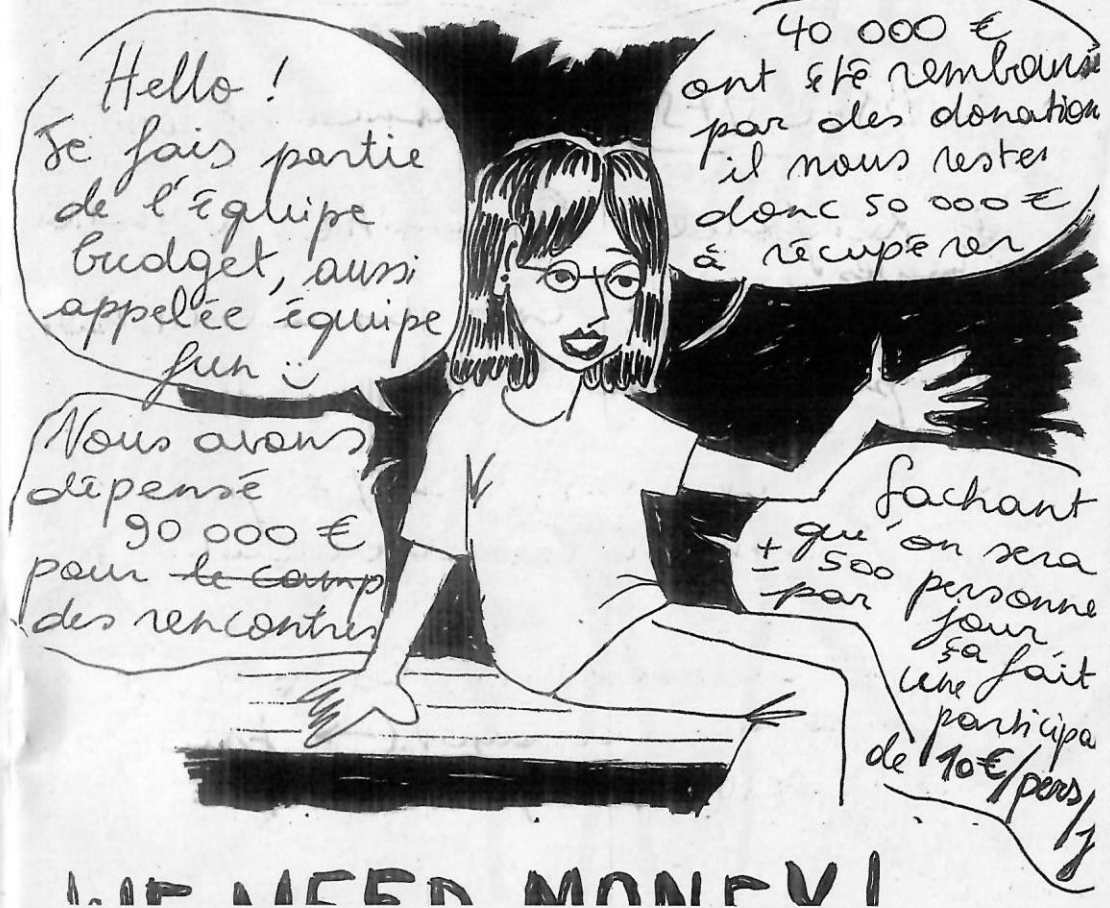 Hello !
Je fais partie
de l'équipe
budget, aussi
appelée équipe
fun :)
Nous avons
dépensé
90 000 €
pour le camp
des rencontres
40 000 €
ont été remboursé
par des donation
il nous rester
donc 50 000 €
à récupérer
Sachant
qu'on sera
± 500 personne
par jour
ça fait
une participa
de 10€/pers/j
WE NEED MONEY!